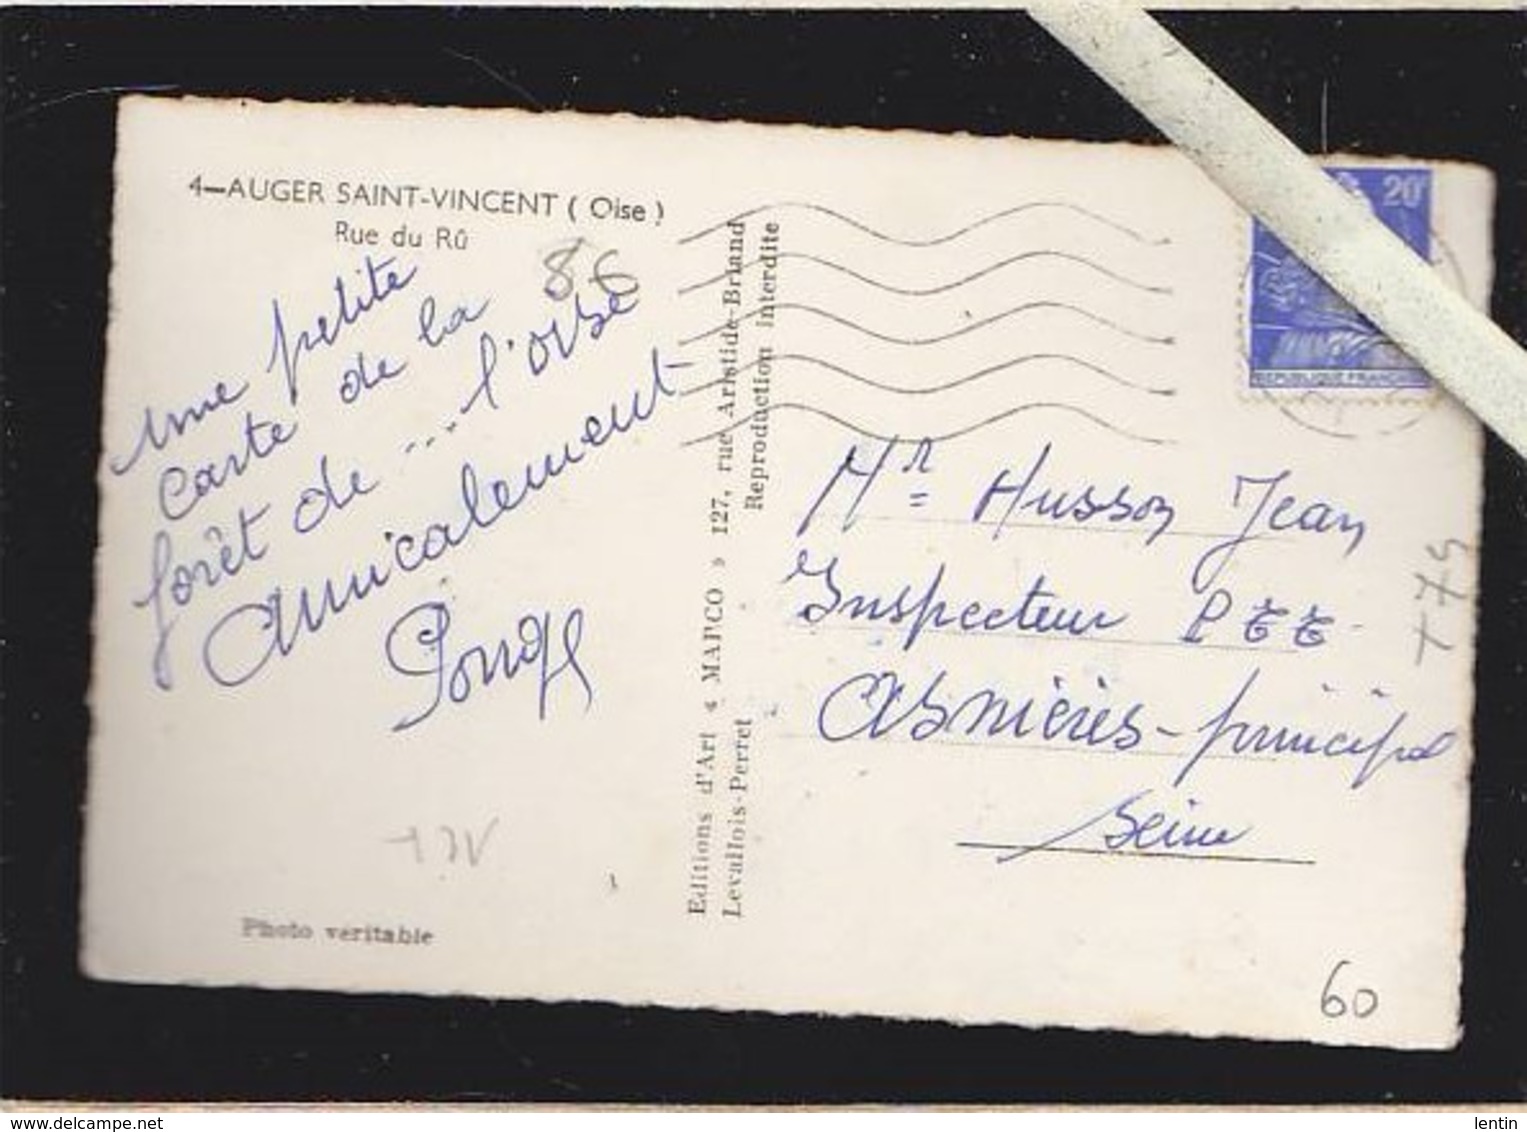 4—AUGER SAINT-VINCENT ( Oise )
Rue du Rû
86
une petite
carte de la
forêt de ... l'oise
Amicalement
Photo veritable
Editions d'Art « MARCO » 127, rue Aristide-Briand
Levallois-Perret Reproduction interdite
20F
REPUBLIQUE FRANCAISE
Mr Husson Jean
Inspecteur PTT
Asnières-principal
Seine
60
www.delcampe.net
lentin